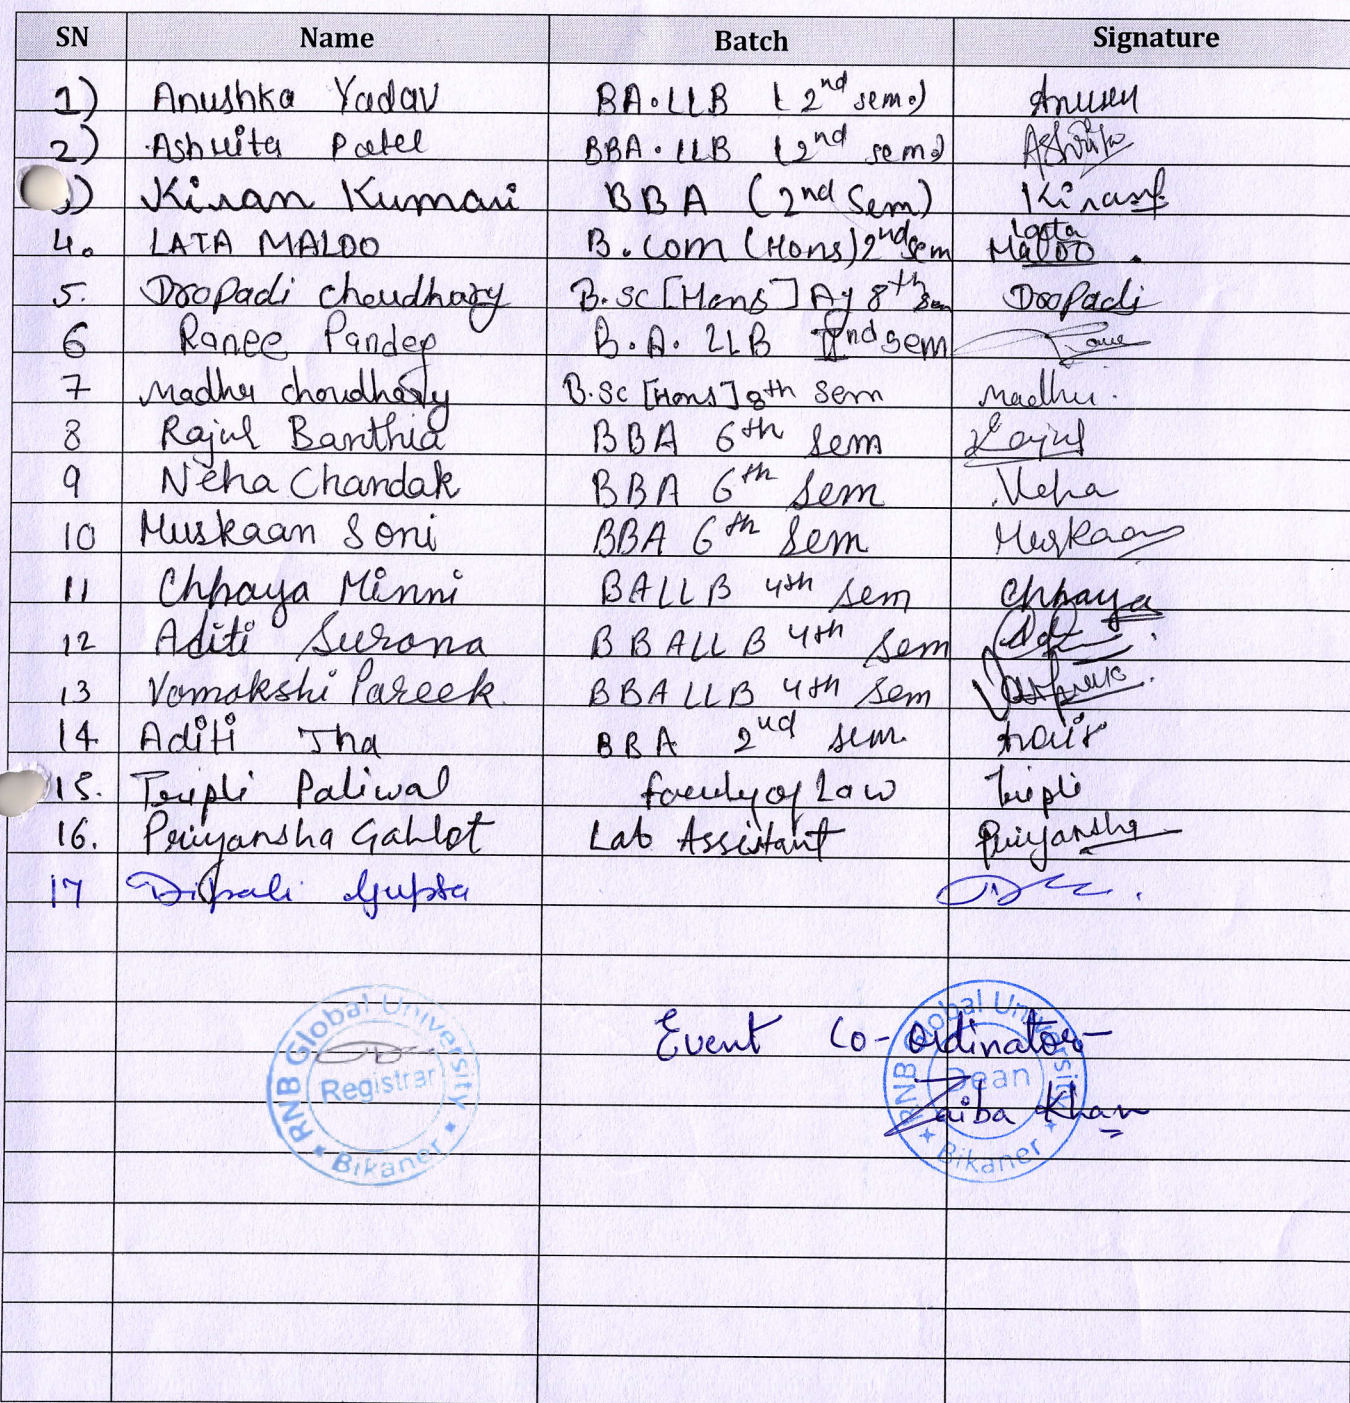 SN Name Batch Signature
1) Anushka Yadav BA.LLB (2nd sem.)
2) Ashvita Patel BBA.LLB (2nd sem) Ashvita
3) Kiran Kumari BBA (2nd Sem) Kiran
4. LATA MALOO B.Com (Hons) 2nd sem Lata Maloo
5. Droopadi choudhary B.Sc [Hons] Ag 8th Sem Droopadi
6 Ranee Pandey B.A. LLB IInd sem
7 Madhu choudhary B.Sc [Hons] 8th Sem Madhu.
8 Rajul Banthia BBA 6th Sem Rajul
9 Neha Chandak BBA 6th Sem Neha
10 Muskaan Soni BBA 6th Sem Muskaan
11 Chhaya Minni BALLB 4th Sem Chhaya
12 Aditi Surana BBALLB 4th Sem
13 Vamakshi Pareek BBALLB 4th Sem
14. Aditi Jha BBA 2nd sem.
15. Tripti Paliwal faculty of Law Tripti
16. Priyansha Gahlot Lab Assistant Priyansha
17 Dipali Gupta
RNB Global University
Registrar
Bikaner
Event Co-ordinator
Zaiba Khan
RNB Global University
Dean
Bikaner